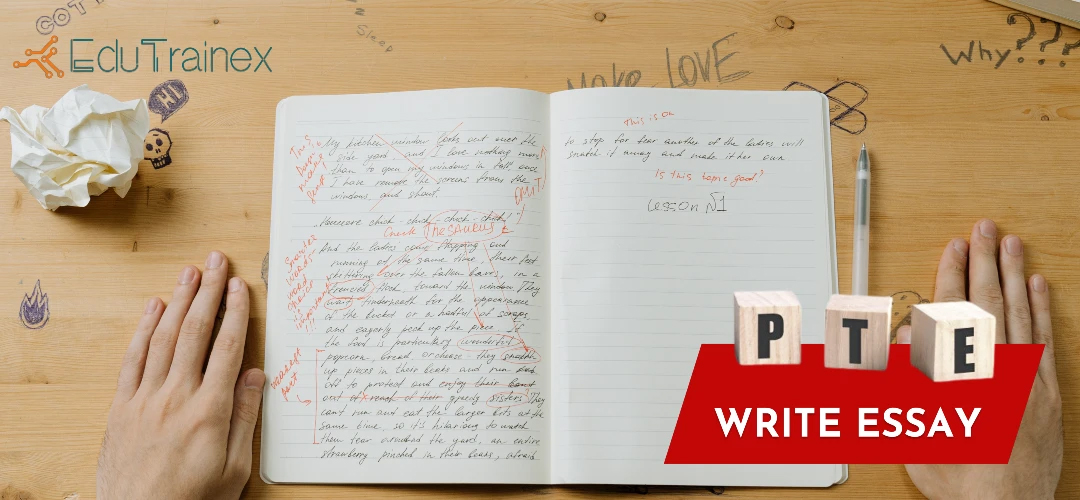 EduTrainex
HI
Sleep
Make LOVE
Why???
This is
My kitchen window looks out over the
side yard and I love nothing more
than to open my windows in fall, once
I have remove the screens from the
windows, and shout.
OMIT!
Here chick-chick-chick-chick!
Check THESAURUS
And the ladies come flapping and
running at the same time, their feet
over the fallen leaves, in a
flock toward the window. They
wait underneath for the appearance
of the bucket or a handful of scraps
and eagerly peck up the piece. If
the food is particularly wonderful
popcorn, bread, or cheese they snatch
up pieces in their beaks and run
off to protect and enjoy their
out of reach of their greedy sisters. They
can't run and eat the larger bits at the
same time, so it's hilarious to watch
them tear around the yard, an entire
strawberry pinched in their beaks, afraid
weakest
part
This is ok
to stop for fear another of the ladies will
snatch it away and make it her own
Is this topic good?
Lesson №1
P T E
WRITE ESSAY